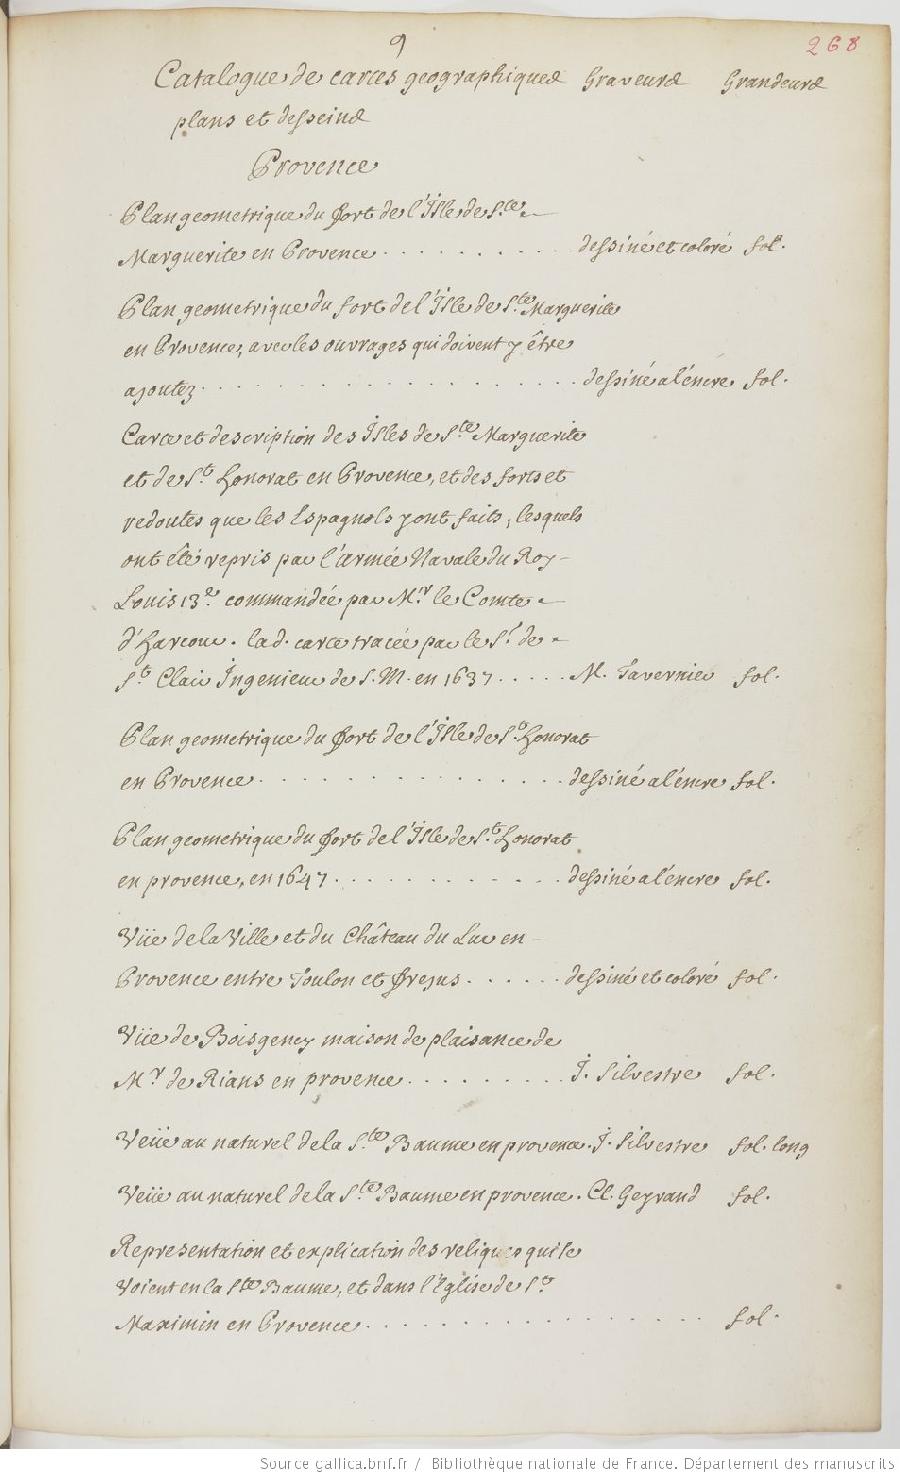 9
268
Catalogue de cartes geographiques Graveurs Grandeurs
plans et desseins
Provence
Plan geometrique du fort de l'Isle de S.te
Marguerite en Provence . . . . . . . . . . dessiné et coloré fol.
Plan geometrique du fort de l'Isle de S.te Marguerite
en Provence, avec les ouvrages qui doivent y être
ajoutez . . . . . . . . . . . . . . . . . . dessiné a l'encre. fol.
Carte et description des Isles de S.te Marguerite
et de S.t Honorat en Provence, et des forts et
redoutes que les Espagnols y ont faits, lesquels
ont êté repris par l'armée Navale du Roy
Louis 13.e commandée par M.r le Comte
d'Harcour. lad. carte tracée par le S.r de
S.t Clair Ingenieur de S. M. en 1637 . . . . . M. Tavernier fol.
Plan geometrique du fort de l'Isle de S.t Honorat
en Provence . . . . . . . . . . . . . . . dessiné a l'encre fol.
Plan geometrique du fort de l'Isle de S.t Honorat
en provence, en 1647 . . . . . . . . . . . . dessiné a l'encre fol.
Vüe de la Ville et du Château du Luc en
Provence entre Toulon et Frejus . . . . . . dessiné et coloré fol.
Vüe de Boisgency maison de plaisance de
M.r de Rians en provence . . . . . . . . . I. Silvestre fol.
Veüe au naturel de la S.te Baume en provence. I. Silvestre fol. long
Veüe au naturel de la S.te Baume en provence. Cl. Goyrand fol.
Representation et explication des reliques qui se
voient en la S.te Baume, et dans l'Eglise de S.t
Maximin en Provence . . . . . . . . . . . . . . . . fol.
Source gallica.bnf.fr / Bibliothèque nationale de France. Département des manuscrits